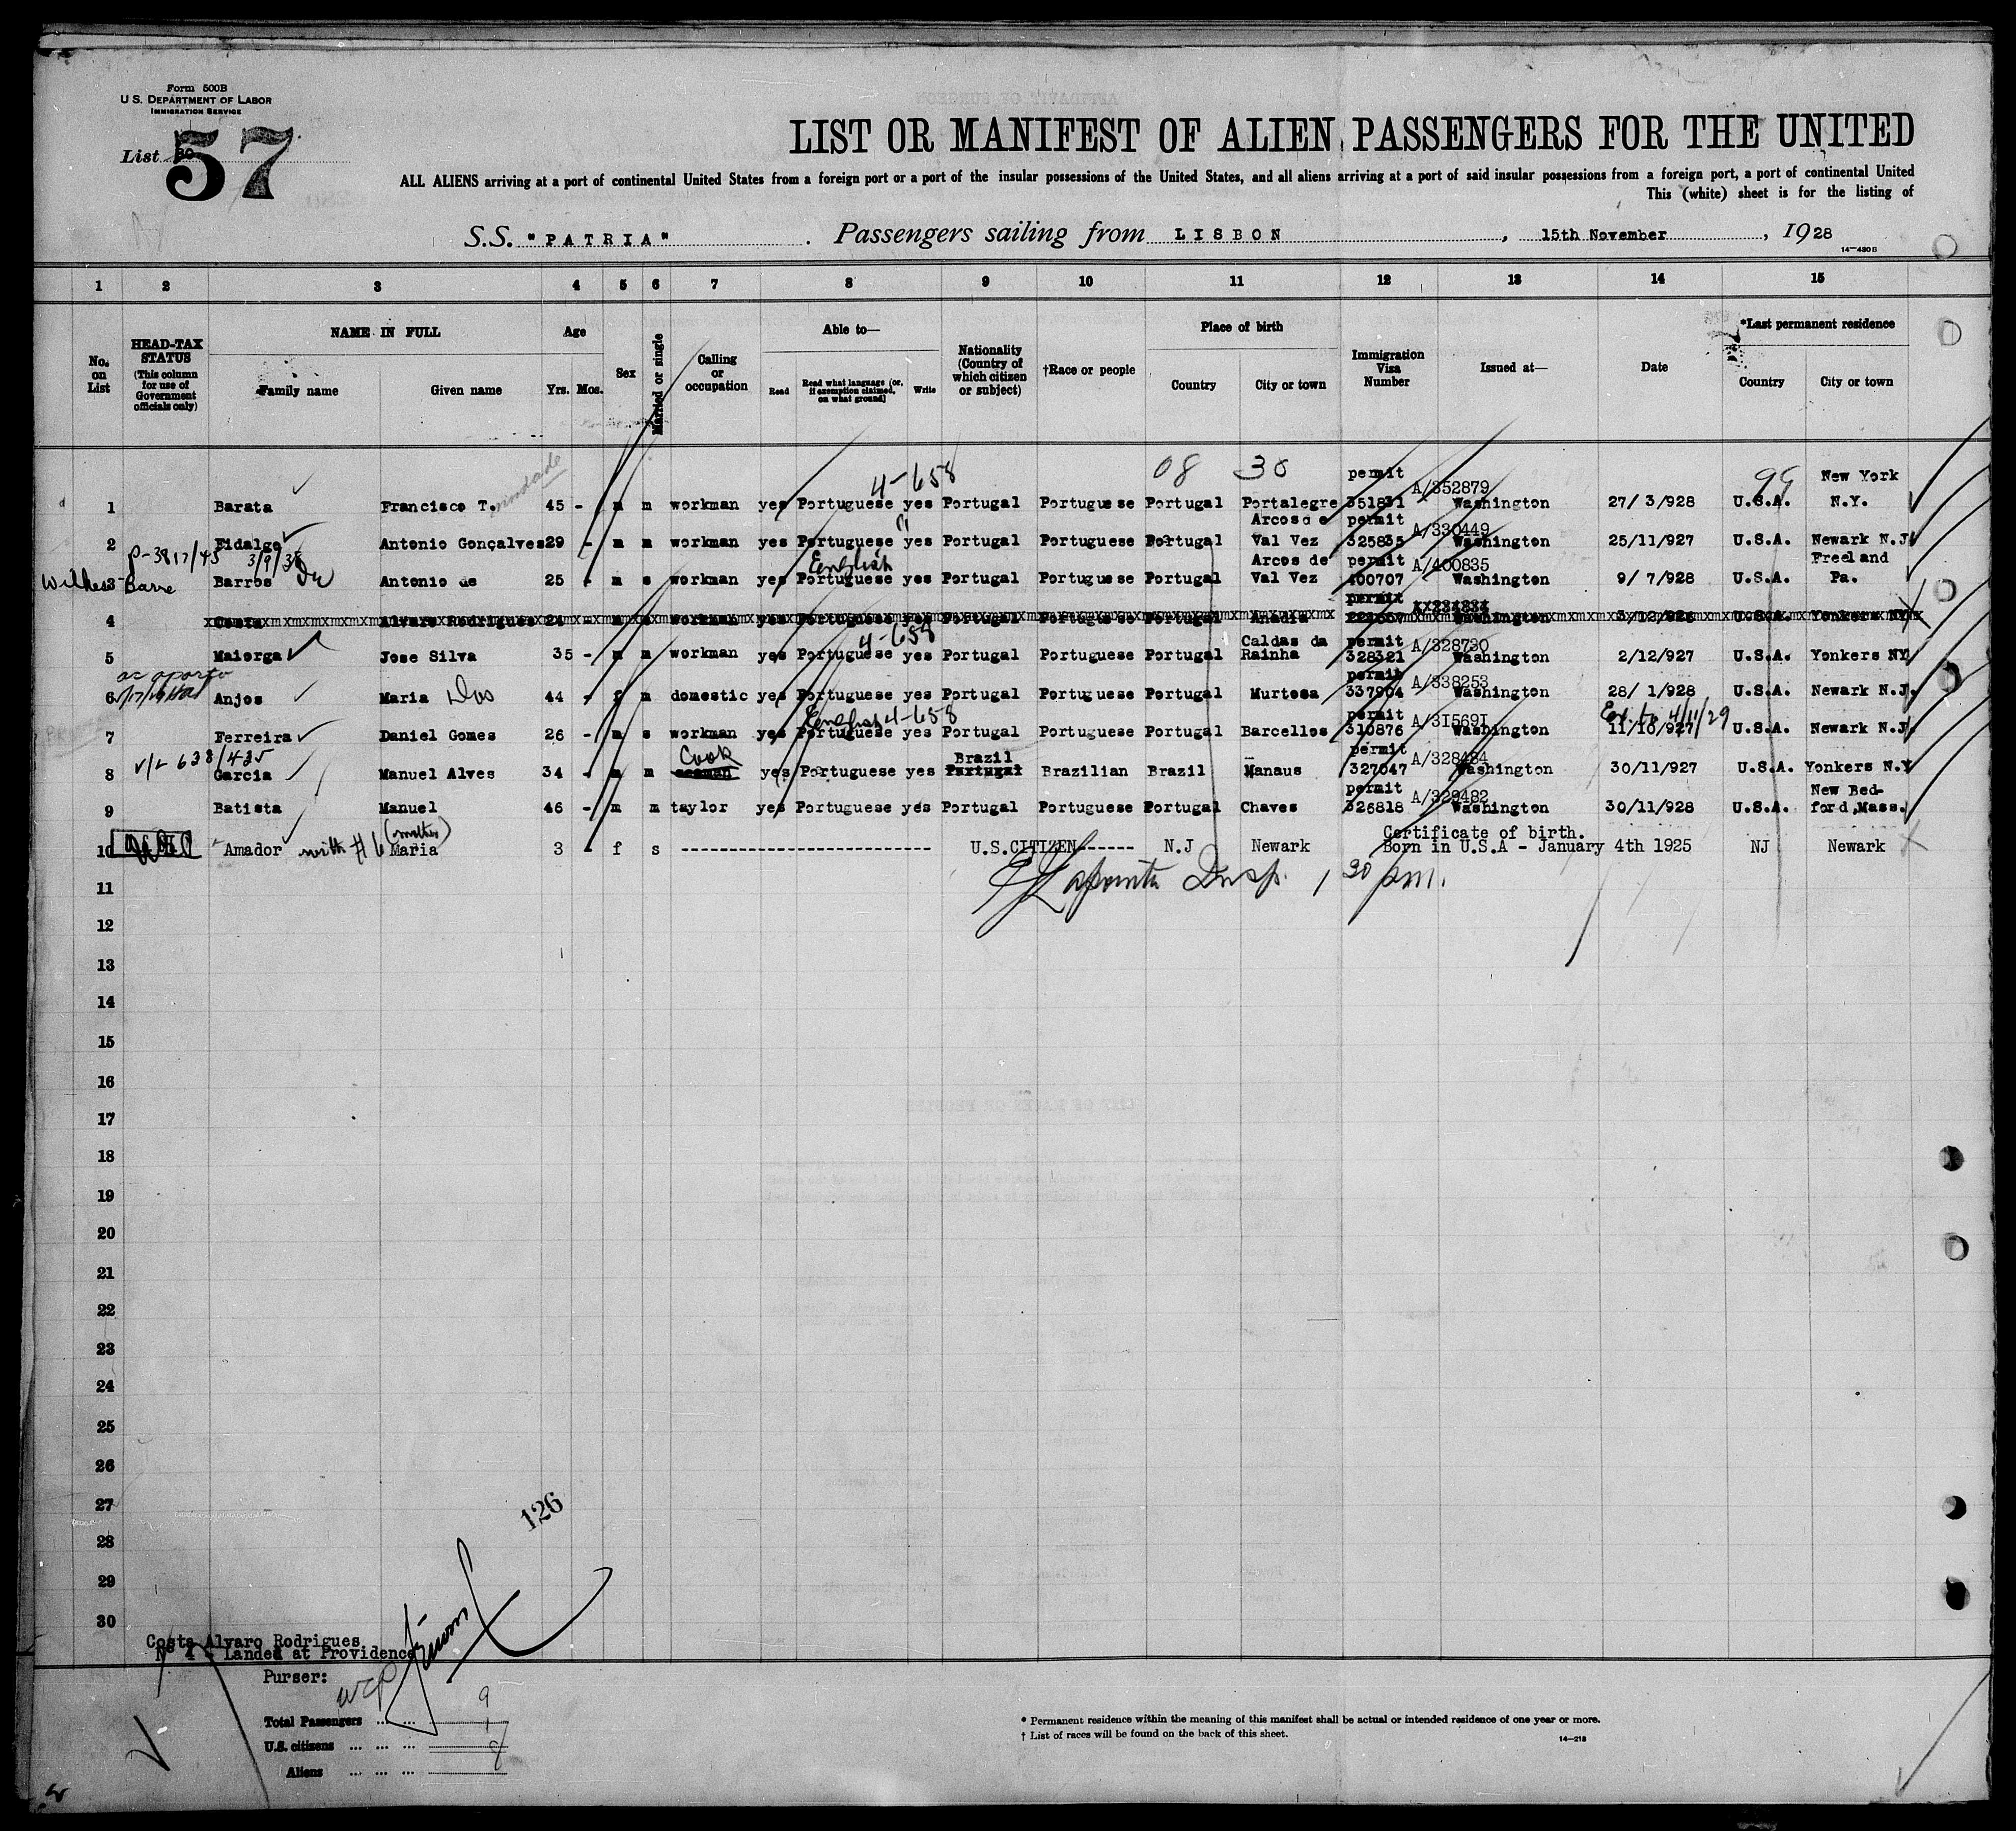 Form 500B
U.S. DEPARTMENT OF LABOR
IMMIGRATION SERVICE
List 57
LIST OR MANIFEST OF ALIEN PASSENGERS FOR THE UNITED
ALL ALIENS arriving at a port of continental United States from a foreign port or a port of the insular possessions of the United States, and all aliens arriving at a port of said insular possessions from a foreign port, a port of continental United
This (white) sheet is for the listing of
S.S. "PATRIA" . Passengers sailing from LISBON , 15th November , 1928
14-430B
1 2 3 4 5 6 7 8 9 10 11 12 13 14 15
No. on List
HEAD-TAX STATUS (This column for use of Government officials only)
NAME IN FULL
Family name Given name
Age
Yrs. Mos.
Sex
Married or single
Calling or occupation
Able to—
Read Read what language (or, if exemption claimed, on what ground) Write
Nationality (Country of which citizen or subject)
†Race or people
Place of birth
Country City or town
Immigration Visa Number
Issued at—
Date
*Last permanent residence
Country City or town
08 30 99
4-658
permit A/352879 New York
1 Barata Francisco T. 45 - m m workman yes Portuguese yes Portugal Portuguese Portugal Portalegre 351831 Washington 27/ 3/928 U.S.A. N.Y.
Arcos de permit A/330449
2 Fidalgo Antonio Gonçalves 29 - m m workman yes Portuguese yes Portugal Portuguese Portugal Val Vez 325835 Washington 25/11/927 U.S.A. Newark N.J.
P-3817/45 3/9/38 English Arcos de permit A/400835 Freeland
Wilkes-Barre 3 Barros De Antonio de 25 - m s workman yes Portuguese yes Portugal Portuguese Portugal Val Vez 400707 Washington 9/ 7/928 U.S.A. Pa.
permit
4 Costa Alvaro Rodrigues workman yes Portuguese yes Portugal Portuguese Portugal Anadia Washington U.S.A. Yonkers NY
4-658 Caldas da permit A/328730
5 Maiorga Jose Silva 35 - m m workman yes Portuguese yes Portugal Portuguese Portugal Rainha 328321 Washington 2/12/927 U.S.A. Yonkers NY
permit A/338253
6 Anjos Maria Dos 44 - f m domestic yes Portuguese yes Portugal Portuguese Portugal Murtosa 337904 Washington 28/ 1/928 U.S.A. Newark N.J.
English 4-658 permit A/315691 Ext. to 4/11/29
7 Ferreira Daniel Gomes 26 - m s workman yes Portuguese yes Portugal Portuguese Portugal Barcellos 310876 Washington 11/10/927 U.S.A. Newark N.J.
v/L 638/435 Cook Brazil permit A/328484
8 Garcia Manuel Alves 34 - m m seaman yes Portuguese yes Portugal Brazilian Brazil Manaus 327047 Washington 30/11/927 U.S.A. Yonkers N.Y
permit A/329482 New Bed-
9 Batista Manuel 46 - m m taylor yes Portuguese yes Portugal Portuguese Portugal Chaves 326818 Washington 30/11/928 U.S.A. ford, Mass.
(mother) Certificate of birth.
10 Amador with #6 Maria 3 - f s U.S.CITIZEN N.J Newark Born in U.S.A - January 4th 1925 NJ Newark
Insp. 1 30 p.m.
11
12
13
14
15
16
17
18
19
20
21
22
23
24
25
26
27
28
29
30
126
Costa Alvaro Rodrigues
Nº 4 - Landed at Providence
Purser:
Total Passengers ... ... 9
U.S. citizens ... ... ... 1
Aliens ... ... ... 8
* Permanent residence within the meaning of this manifest shall be actual or intended residence of one year or more.
† List of races will be found on the back of this sheet.
14-218